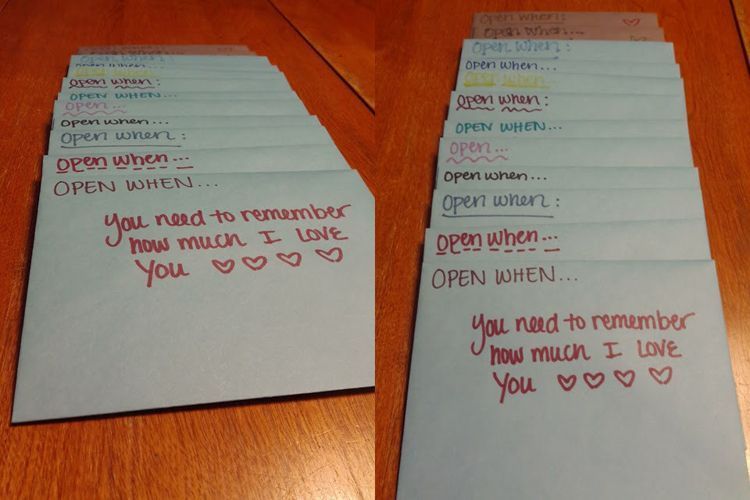 Open when :
Open when...
Open when:
OPEN WHEN...
Open ...
Open when...
Open when :
Open when...
OPEN WHEN...
You need to remember
how much I LOVE
You ♡ ♡ ♡ ♡
Open when:
Open when...
Open when :
Open when...
Open when...
Open when:
OPEN WHEN...
Open ...
Open when...
Open when :
Open when...
OPEN WHEN...
You need to remember
how much I LOVE
You ♡ ♡ ♡ ♡